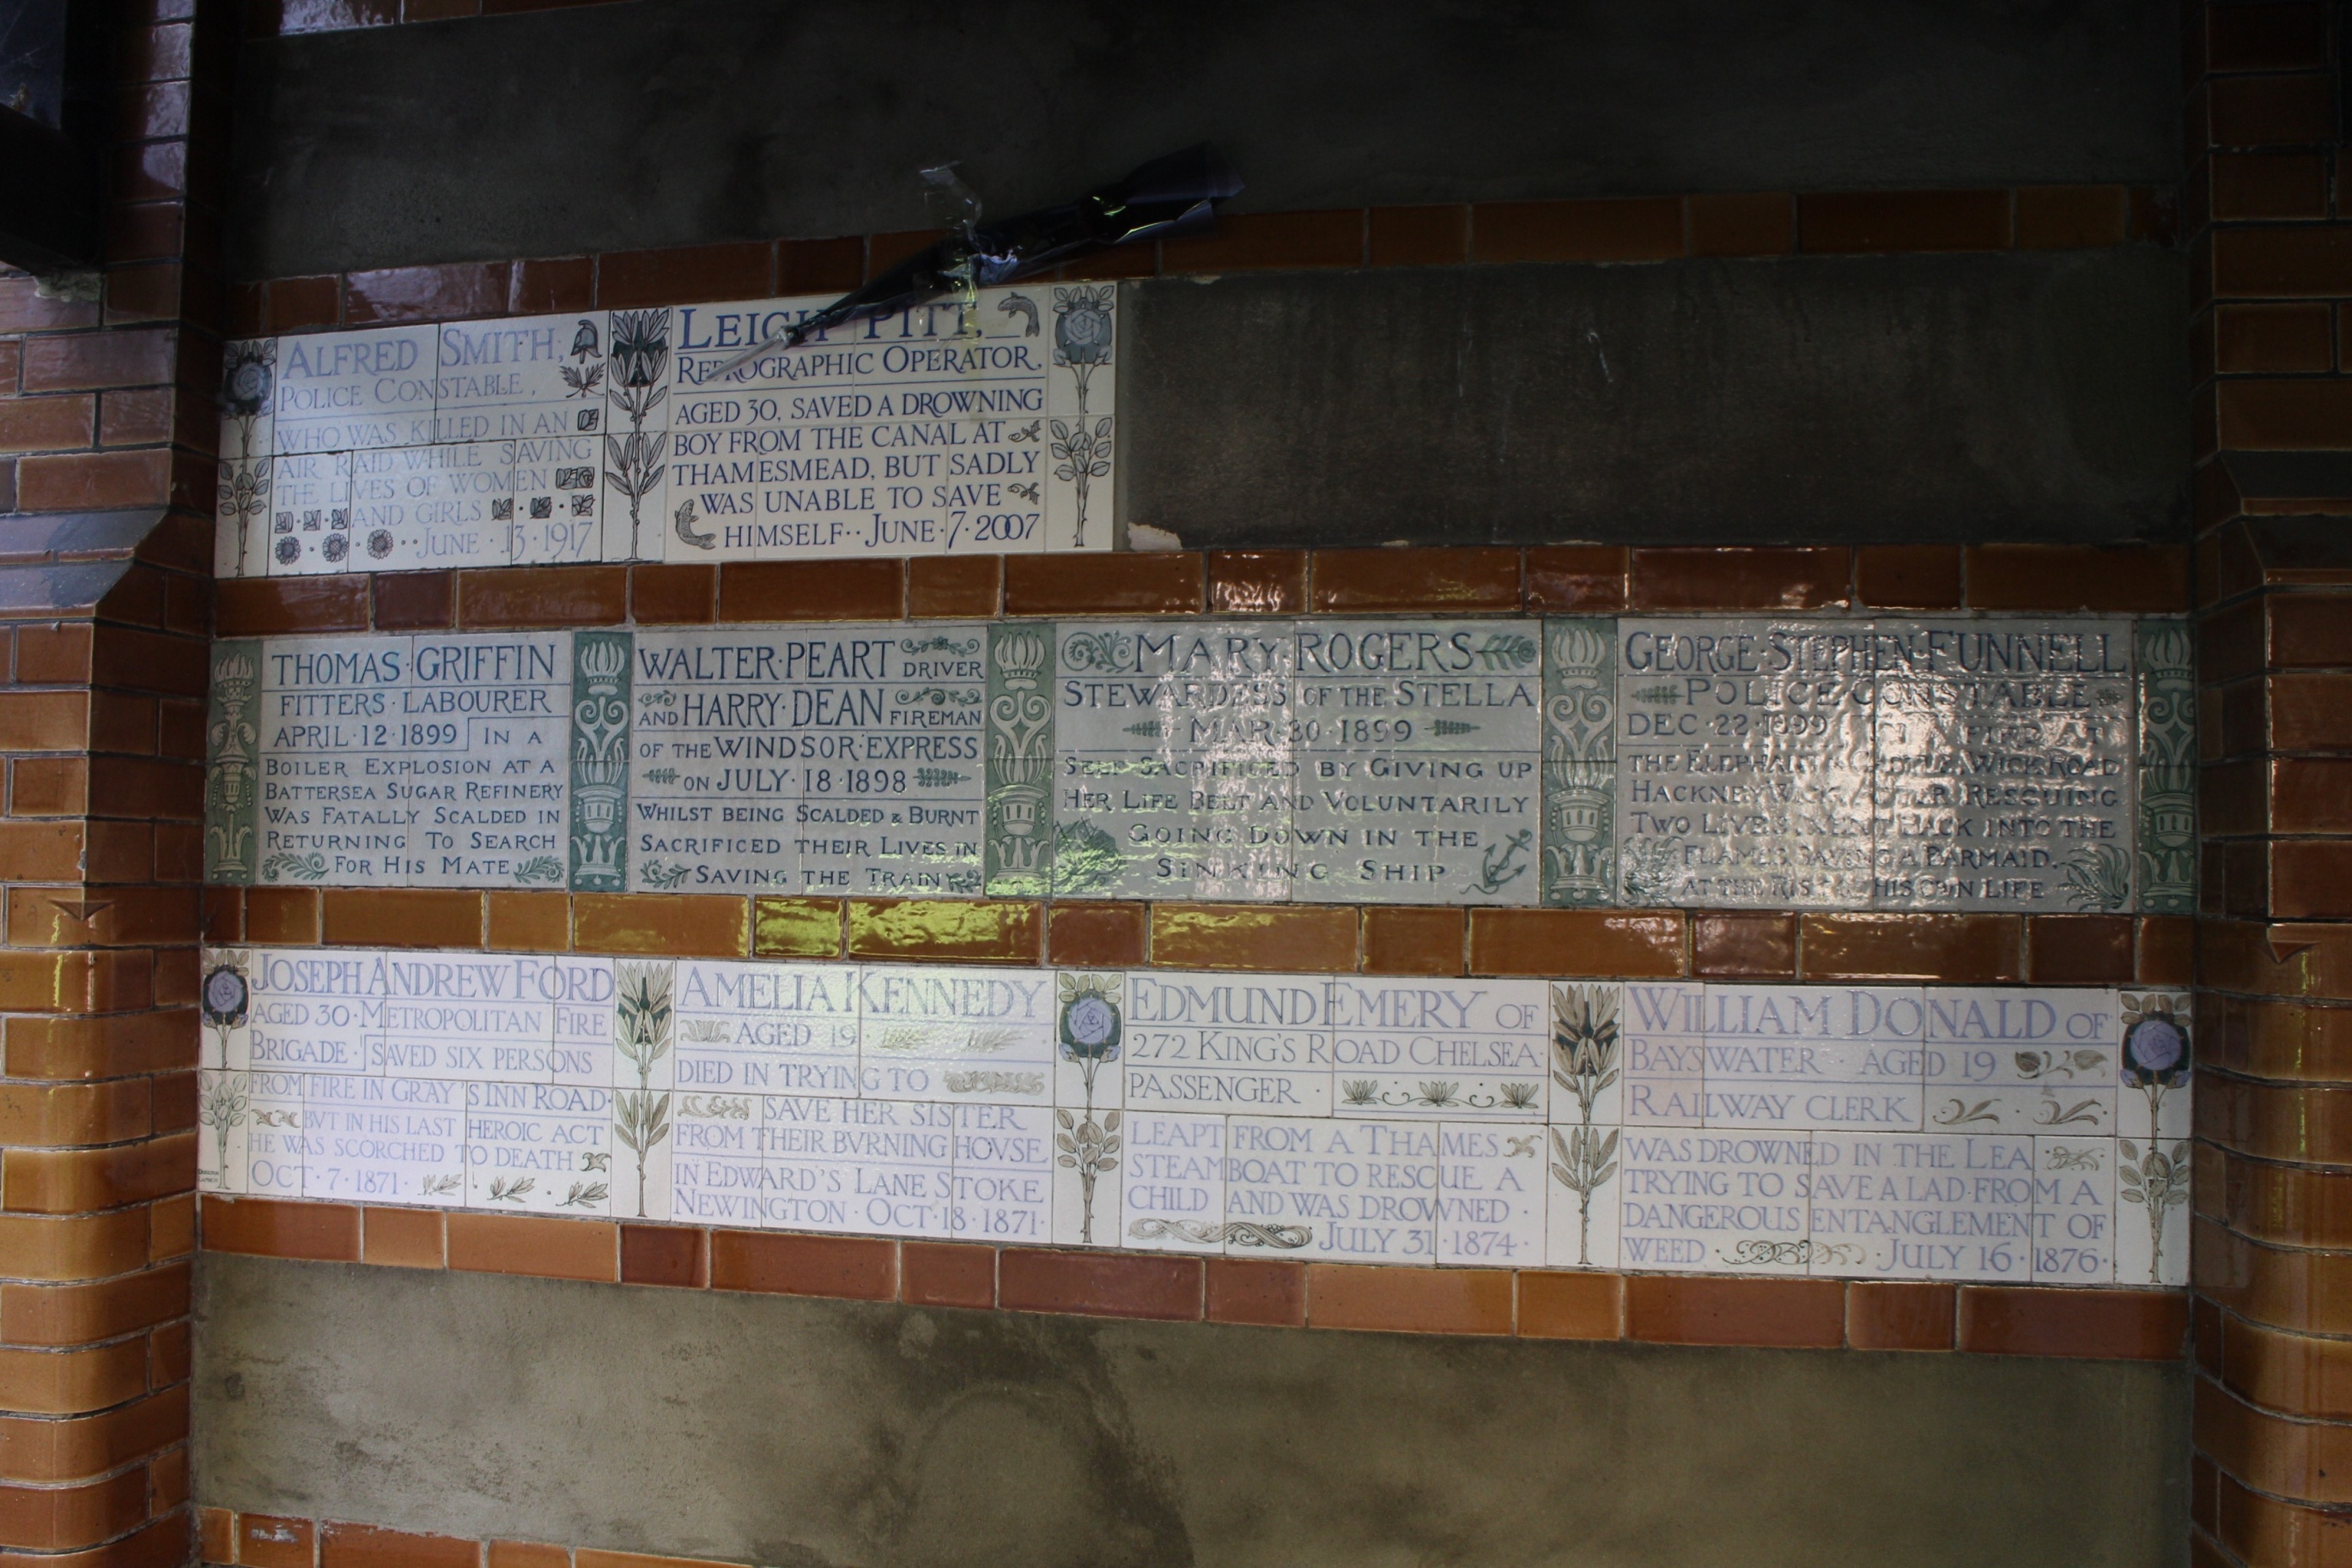 ALFRED SMITH,
POLICE CONSTABLE,
WHO WAS KILLED IN AN
AIR RAID WHILE SAVING
THE LIVES OF WOMEN
AND GIRLS
JUNE · 13 · 1917
LEIGH PITT,
REPROGRAPHIC OPERATOR,
AGED 30, SAVED A DROWNING
BOY FROM THE CANAL AT
THAMESMEAD, BUT SADLY
WAS UNABLE TO SAVE
HIMSELF·· JUNE · 7 · 2007
THOMAS · GRIFFIN
FITTERS · LABOURER
APRIL · 12 · 1899 IN A
BOILER EXPLOSION AT A
BATTERSEA SUGAR REFINERY
WAS FATALLY SCALDED IN
RETURNING TO SEARCH
FOR HIS MATE
WALTER · PEART DRIVER
AND HARRY · DEAN FIREMAN
OF THE WINDSOR · EXPRESS
ON JULY · 18 · 1898
WHILST BEING SCALDED & BURNT
SACRIFICED THEIR LIVES IN
SAVING THE TRAIN
MARY · ROGERS
STEWARDESS OF THE STELLA
MAR · 30 · 1899
SELF SACRIFICED BY GIVING UP
HER LIFE BELT AND VOLUNTARILY
GOING DOWN IN THE
SINKING SHIP
GEORGE · STEPHEN · FUNNELL
POLICE CONSTABLE
DEC · 22 · 1899 IN A FIRE AT
THE ELEPHANT & CASTLE, WICK ROAD
HACKNEY WICK, AFTER RESCUING
TWO LIVES, WENT BACK INTO THE
FLAMES, SAVING A BARMAID.
AT THE RISK OF HIS OWN LIFE
JOSEPH ANDREW FORD
AGED 30 · METROPOLITAN FIRE
BRIGADE · SAVED SIX PERSONS
FROM FIRE IN GRAY'S INN ROAD ·
BVT IN HIS LAST HEROIC ACT
HE WAS SCORCHED TO DEATH
OCT · 7 · 1871 ·
AMELIA KENNEDY
AGED 19 ·
DIED IN TRYING TO
SAVE HER SISTER
FROM THEIR BVRNING HOVSE
IN EDWARD'S LANE STOKE
NEWINGTON · OCT · 18 · 1871 ·
EDMUND EMERY OF
272 KING'S ROAD CHELSEA ·
PASSENGER ·
LEAPT FROM A THAMES
STEAMBOAT TO RESCUE A
CHILD AND WAS DROWNED ·
JULY 31 · 1874 ·
WILLIAM DONALD OF
BAYSWATER · AGED 19
RAILWAY CLERK
WAS DROWNED IN THE LEA
TRYING TO SAVE A LAD FROM A
DANGEROUS ENTANGLEMENT OF
WEED · JULY 16 · 1876 ·